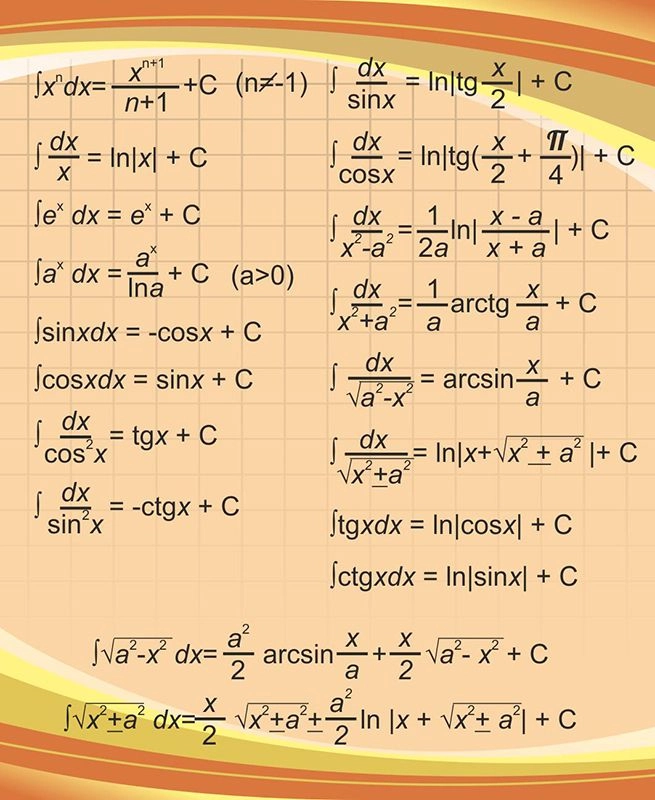 ∫xⁿdx= xⁿ⁺¹/n+1 +C (n≠-1)
∫ dx/x = ln|x| + C
∫eˣ dx = eˣ + C
∫aˣ dx = aˣ/lna + C (a>0)
∫sinxdx = -cosx + C
∫cosxdx = sinx + C
∫ dx/cos²x = tgx + C
∫ dx/sin²x = -ctgx + C
∫ dx/sinx = ln|tg x/2| + C
∫ dx/cosx = ln|tg(x/2 + π/4)| + C
∫ dx/x²-a² = 1/2a ln|x - a/x + a| + C
∫ dx/x²+a² = 1/a arctg x/a + C
∫ dx/√a²-x² = arcsin x/a + C
∫ dx/√x²±a² = ln|x+√x² ± a² |+ C
∫tgxdx = ln|cosx| + C
∫ctgxdx = ln|sinx| + C
∫√a²-x² dx= a²/2 arcsin x/a + x/2 √a²- x² + C
∫√x²±a² dx= x/2 √x²±a² ± a²/2 ln |x + √x²± a²| + C